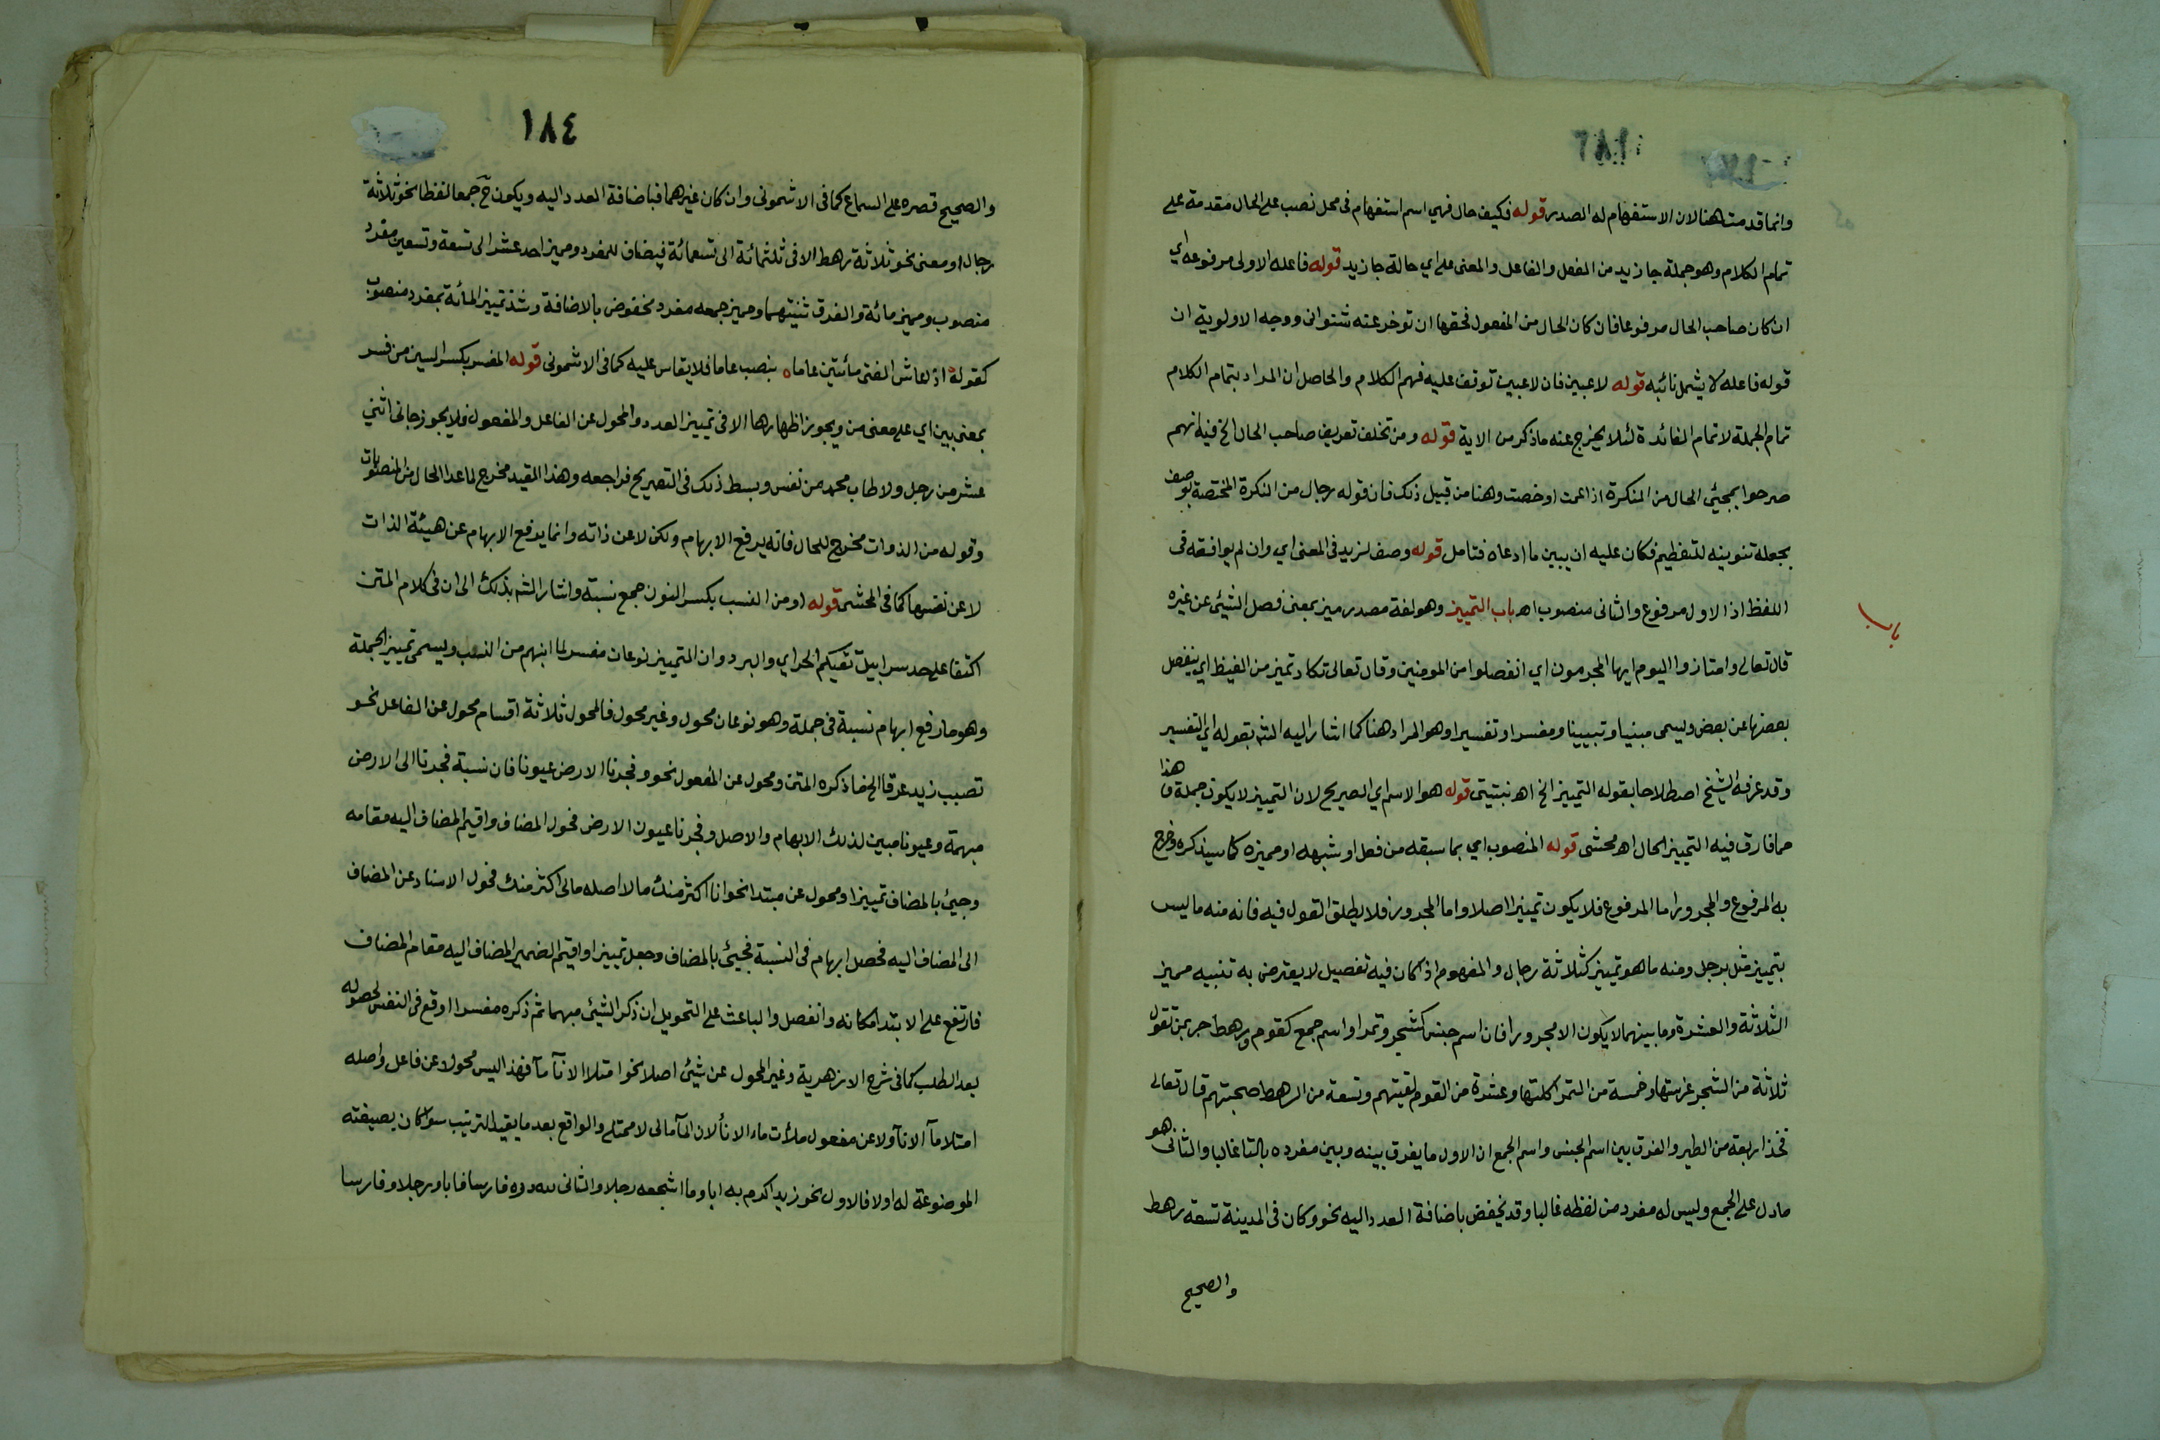 وانما قدمت هنا لان الاستفهام له الصدر قوله فكيف حال فهي اسم استفهام في محل نصب على الحال مقدمة على
تمام الكلام وهو جملة جا زيد من الفعل والفاعل والمعنى على اي حالة جا زيد قوله فاعله الاولى مرفوعه اي
ان كان صاحب الحال مرفوعا فان كان الحال من المفعول فحقها ان توخر عنه شنواني ووجه الاولوية ان
قوله فاعله لا يشمل نائبه قوله لاعبين فان لاعبين توقف عليه فهم الكلام والحاصل ان المراد بتمام الكلام
تمام الجملة لا تمام الفائدة لئلا يخرج عنه ما ذكر من الاية قوله ومن تخلف تعريف صاحب الحال الخ فيه انهم
صرحوا بمجيئ الحال من النكرة اذا عمت او خصت وهنا من قبيل ذلك فان قوله رجال من النكرة المختصة بوصف
بجعله تنوينه للتعظيم فكان عليه ان يبين ما ادعاه فتامل قوله وصف لزيد في المعنى اي وان لم يوافقه في
اللفظ اذ الاول مرفوع والثاني منصوب اهـ باب التمييز وهو لغة مصدر ميز بمعنى فصل الشيئ عن غيره
باب
قال تعالى وامتازوا اليوم ايها المجرمون اي انفصلوا من المومنين وقال تعالى تكاد تميز من الغيظ اي ينفصل
بعضها عن بعض ويسمى مبنيا وتبيينا ومفسرا وتفسيرا وهو المراد هنا كما اشار اليه الشـ بقوله اي التفسير
وقد عرفه الشيخ اصطلاحا بقوله التمييز الخ اهـ نبتيتى قوله هو الاسم اي الصريح لان التمييز لا يكون جملة هذا
مما فارق فيه التمييز الحال اهـ محشى قوله المنصوب اي بما سبقه من فعل او شبهه او مميزه كما سيذكره وخرج
به المرفوع والمجرور اما المرفوع فلا يكون تمييزا اصلا واما المجرور فلا يطلق القول فيه فانه منه ما ليس
بتمييز مثل برجل ومنه ما هو تمييز كثلاثة رجال والمفهوم اذا كان فيه تفصيل لا يعترض به تنبيه مميز
الثلاثة والعشرة وما بينهما لا يكون الا مجرورا فان اسم جنس كشجر وتمر او اسم جمع كقوم ورهط جر بمن تقول
ثلاثة من الشجر غرستها وخمسة من التمر اكلتها وعشرة من القوم لقيتهم وتسعة من الرهط صحبتهم قال تعالى
فخذ اربعة من الطير والفرق بين اسم الجنس واسم الجمع ان الاول ما يفرق بينه وبين مفرده بالتا غالبا والثاني هو
ما دل على الجمع وليس له مفرد من لفظه غالبا وقد يخفض باضافة العدد اليه نحو وكان في المدينة تسعة رهط
والصحيح
١٨٤
والصحيح قصره على السماع كما في الاشموني وان كان غيرهما فباضافة العدد اليه ويكون ح جمعا لفظا نحو ثلاثة
رجال او معنى نحو ثلاثة رهط الا في ثلثمائة الى تسعمائة فيضاف للمفرد ومميز احد عشر الى تسعة وتسعين مفرد
منصوب ومميز مائة والف وتثنيتهما ومميز جمعه مفرد مخفوض بالاضافة وشذ تمييز المائة بمفرد منصوب
كقوله اذا عاش الفتى مائتين عاما ه بنصب عاما فلا يقاس عليه كما في الاشموني قوله المفسر بكسر السين من فسر
بمعنى بين اي على معنى من ويجوز اظهارها الا في تمييز العدد والمحول عن الفاعل والمفعول فلا يجوز جاني اثني
عشر من رجل ولا طاب محمد من نفس وبسط ذلك في التصريح فراجعه وهذا القيد مخرج لما عدا الحال من المنصوبات
وقوله من الذوات مخرج للحال فانه يرفع الابهام ولكن لا عن ذاته وانما يرفع الابهام عن هيئة الذات
لا عن نفسها كما في المحشى قوله او من النسب بكسر النون جمع نسبة واشار الشـ بذلك الى ان في كلام المتن
اكتفا على حد سرابيل تقيكم الحر اي والبرد وان التمييز نوعان مفسر لما انبهم من النسب ويسمى تمييز الجملة
وهو ما رفع ابهام نسبة في جملة وهو نوعان محول وغير محول فالمحول ثلاثة اقسام محول عن الفاعل نحو
تصبب زيد عرقا الخ ما ذكره المتن ومحول عن المفعول نحو وفجرنا الارض عيونا فان نسبة فجرنا الى الارض
مبهمة وعيونا مبين لذلك الابهام والاصل وفجرنا عيون الارض فحول المضاف واقيم المضاف اليه مقامه
وجيئ بالمضاف تمييزا ومحول عن مبتدا نحو انا اكثر منك مالا اصله مالي اكثر منك فحول الاسناد عن المضاف
الى المضاف اليه فحصل ابهام في النسبة فجيئ بالمضاف وجعل تمييزا واقيم الضمير المضاف اليه مقام المضاف
فارتفع على الابتدا مكانه وانفصل والباعث على التحويل ان ذكر الشيئ مبهما ثم ذكره مفسرا اوقع في النفس لحصوله
بعد الطلب كما في شرح الازهرية وغير المحول عن شيئ اصلا نحو امتلا الانآ مآ فهذا ليس محولا عن فاعل واصله
امتلا مآ الانآ ولا عن مفعول ملأت ماء الانأ لان المآ مالى لا ممتلى والواقع بعد ما يفيد الترتيب سوا كان بصيغته
الموضوعة له اولا فالاول نحو زيد اكرم به ابا وما اشجعه رجلا والثاني لله دره فارسا فابا ورجلا وفارسا